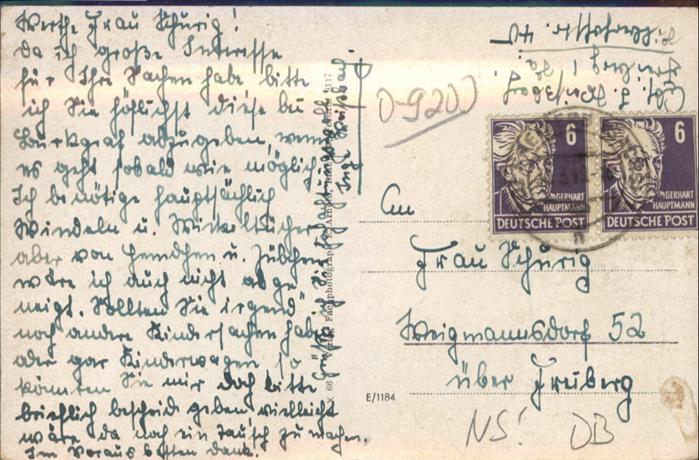 Werthe Frau Schurig!
Da ich große Interesse
für Ihre Sachen habe, bitte
ich Sie höflichst diese bei
Burkhardt abzugeben, wenn
es geht sobald wie möglich.
Ich benötige hauptsächlich
Windeln u. Wickeltücher
aber von Hemdchen u. Jäckchen
wäre ich auch nicht abge
neigt. Sollten Sie irgend
noch andere Kindersachen haben
oder gar Kinderwagen so
könnten Sie mir doch bitte
brieflich bescheid geben vielleicht
wäre da noch ein Tausch zu machen.
Im Voraus besten Dank.
Inge Weißbach
Abs. J. Weißbach
Freiberg i. Sa.
Hilbersdorfstr. 40
0-9200
6
GERHART
HAUPTMANN
DEUTSCHE POST
6
GERHART
HAUPTMANN
DEUTSCHE POST
An
Frau Schurig
Weigmannsdorf 52
über Freiberg
E/1184
NS! DB